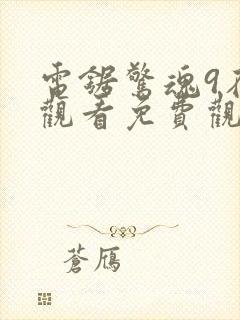 電鋸驚魂9
觀看免費觀
蒼鴈